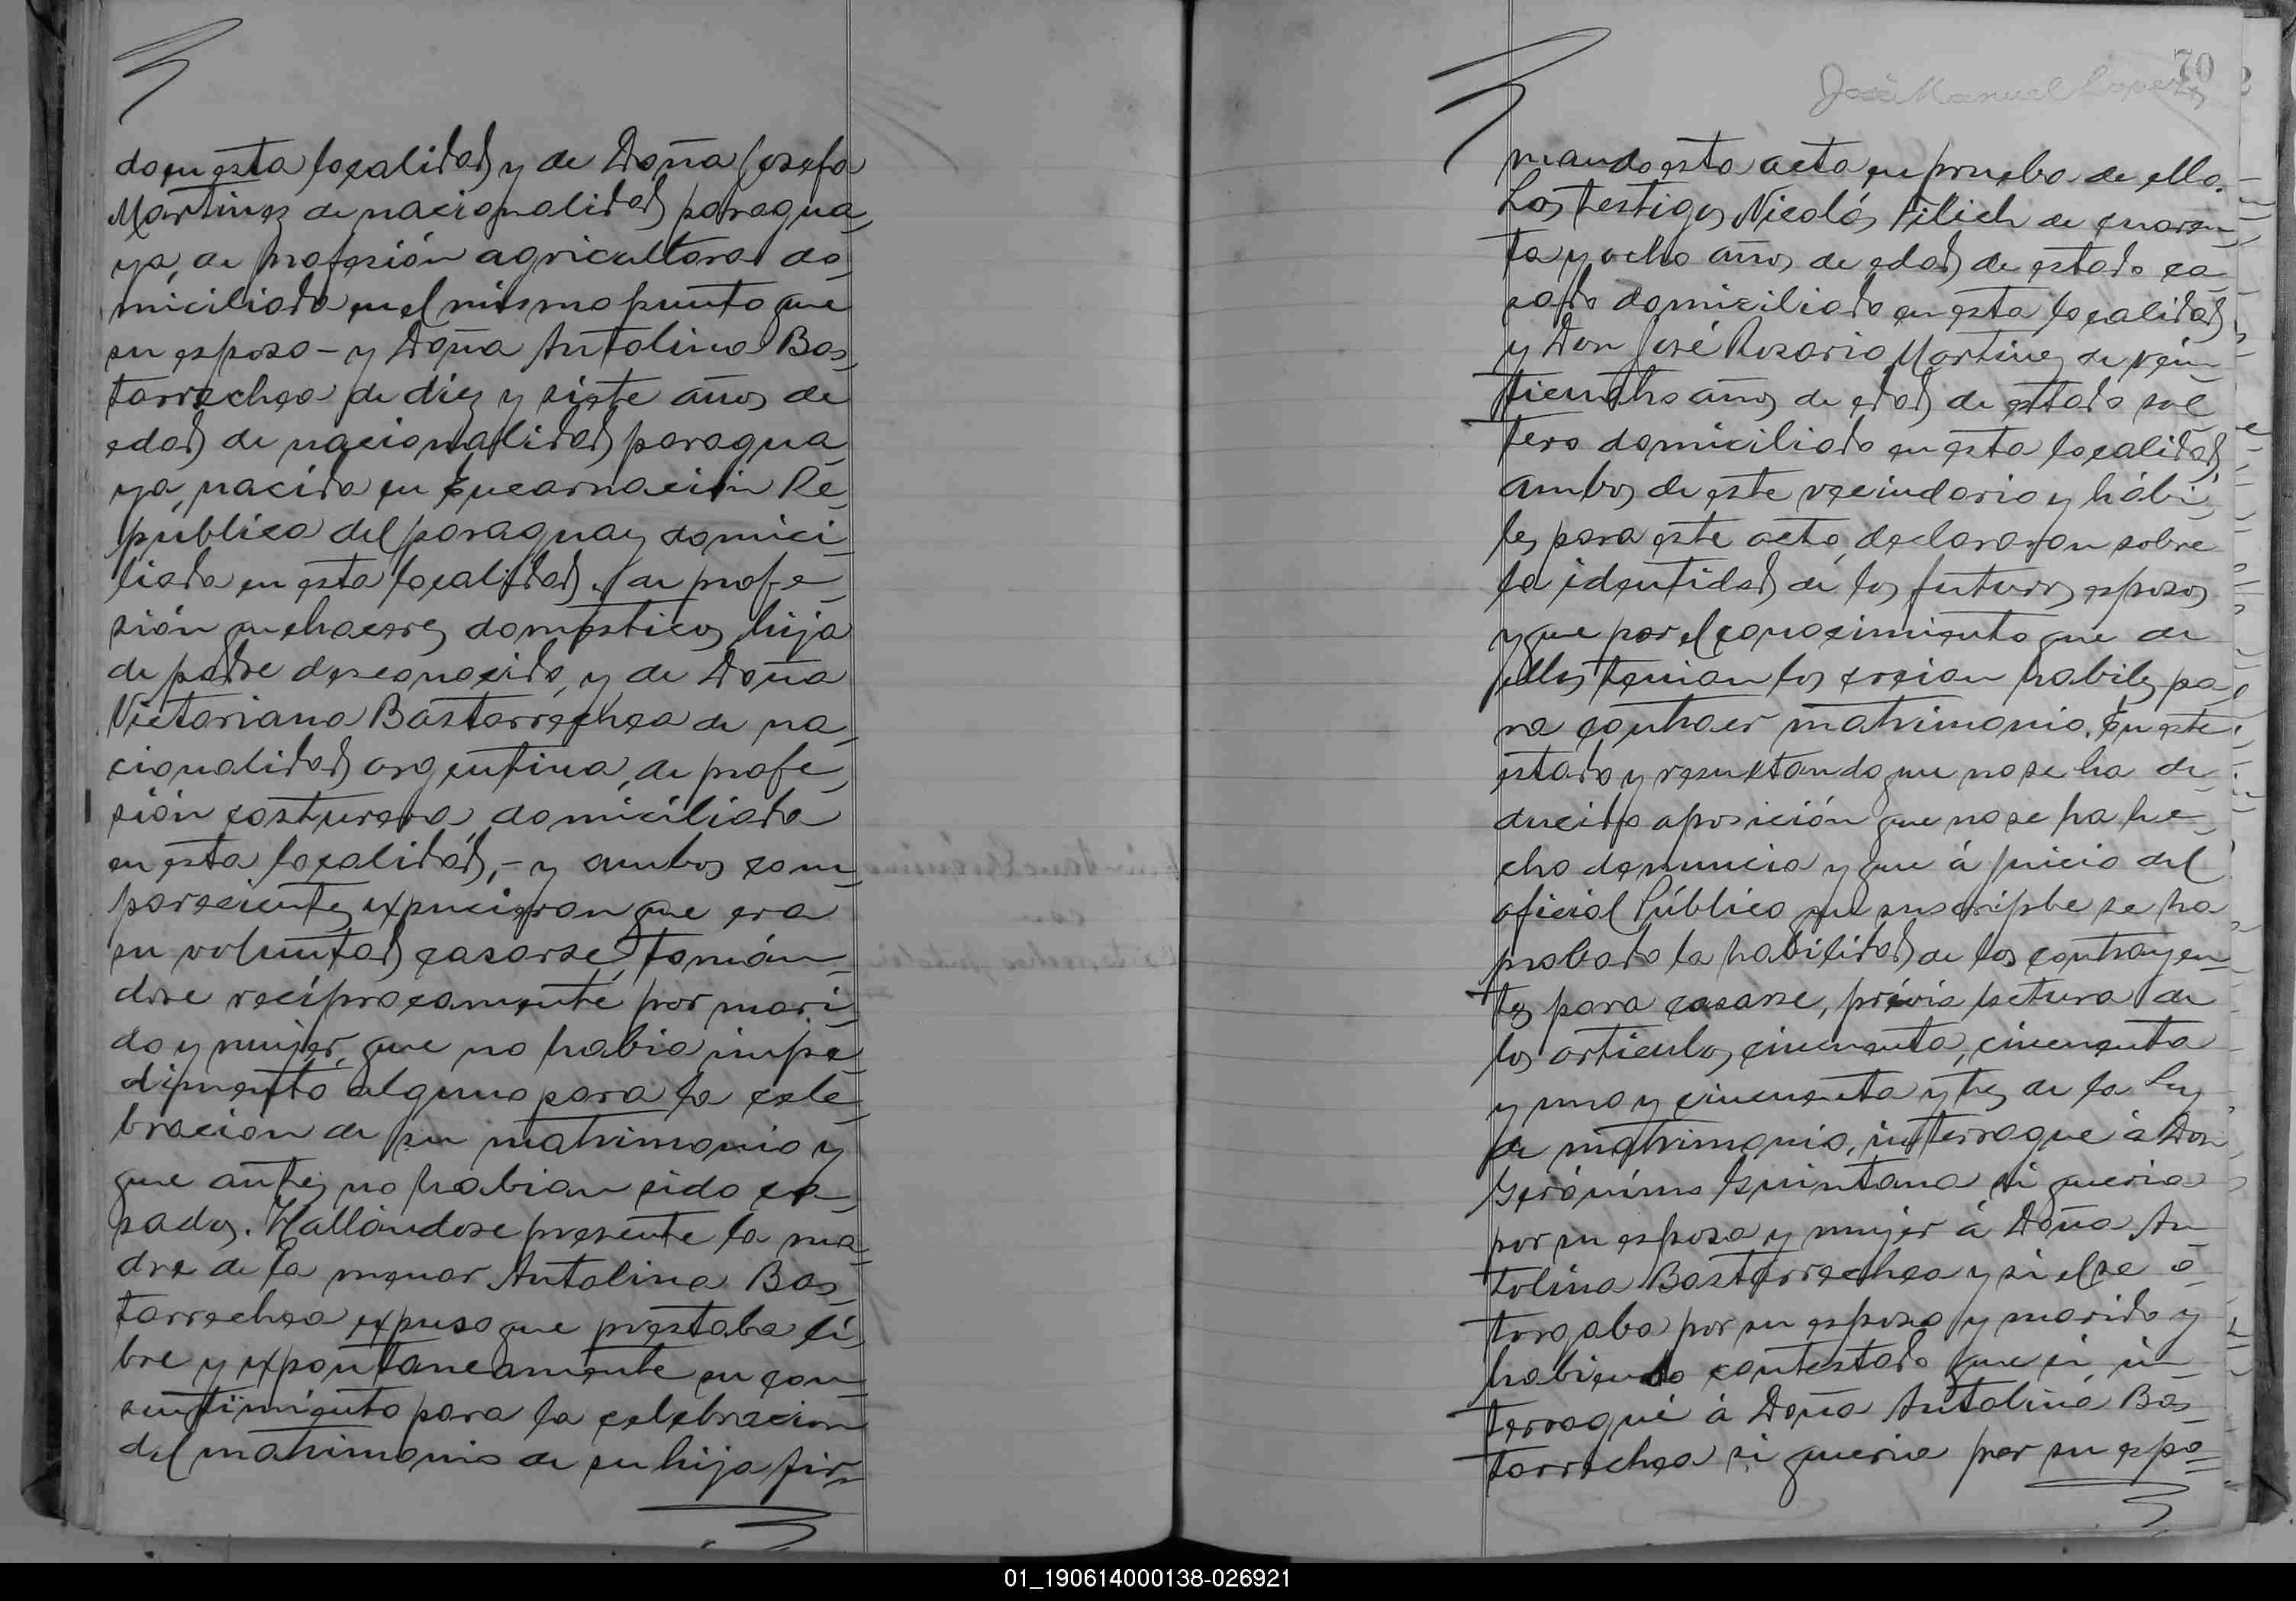 do en esta localidad y de Doña Josefa
Martinez de nacionalidad paragua
ya, de profesión agricultora do
miciliada en el mismo punto que
su esposo - y Doña Antolina Bas
tarrechea de diez y siete años de
edad de nacionalidad paragua
ya, nacida en Encarnación Re
pública del paraguay domici
liada en esta localidad, de profe
sión quehaceres domésticos, hija
de padre desconocido, y de Doña
Victoriana Bastarrechea de na
cionalidad argentina, de profe
sión costurera, domiciliada
en esta localidad, - y ambos com
parecientes expucieron que era
su voluntad casarse, tomán
dose recíprocamente por mari
do y mujer, que no habia impe
dimento alguno para la cele
bración de su matrimonio y
que antes no habian sido ca
sados. Hallándose presente la ma
dre de la menor Antolina Bas
tarrechea expuso que prestaba li
bre y expontaneamente su con
sentimiento para la celebracion
del matrimonio de su hija fir=
70
José Manuel Lopez
mando esta acta en prueba de ello.
Los testigos Nicolás Filich de cuaren
ta y ocho años de edad de estado ca
sado domiciliado en esta localidad
y Don José Rosario Martinez de vein
tiocho años de edad de estado sol
tero domiciliado en esta localidad
ambos de este vecindario y hábi
les para este acto, declararon sobre
la identidad de los futuros esposos
y que por el conocimiento que de
ellos tenian los creian habiles pa
ra contraer matrimonio. En este
estado y resultando que no se ha de
ducido oposición que no se ha he
cho denuncia y que á juicio del
oficial Público que suscripbe se ha
probado la habilidad de los contrayen
tes para casarse, prévia lectura de
los articulos cincuenta, cincuenta
y uno y cincuenta y tres de la Ley
de matrimonio, interrogue á Don
Gerónimo Quintana si queria
por su esposa y mujer á Doña An
tolina Bastarrechea y si él se o
torgaba por su esposo y marido y
habiendo contestado que si in
terrogué á Doña Antolina Bas
tarrechea si queria por su espo=
01_190614000138-026921